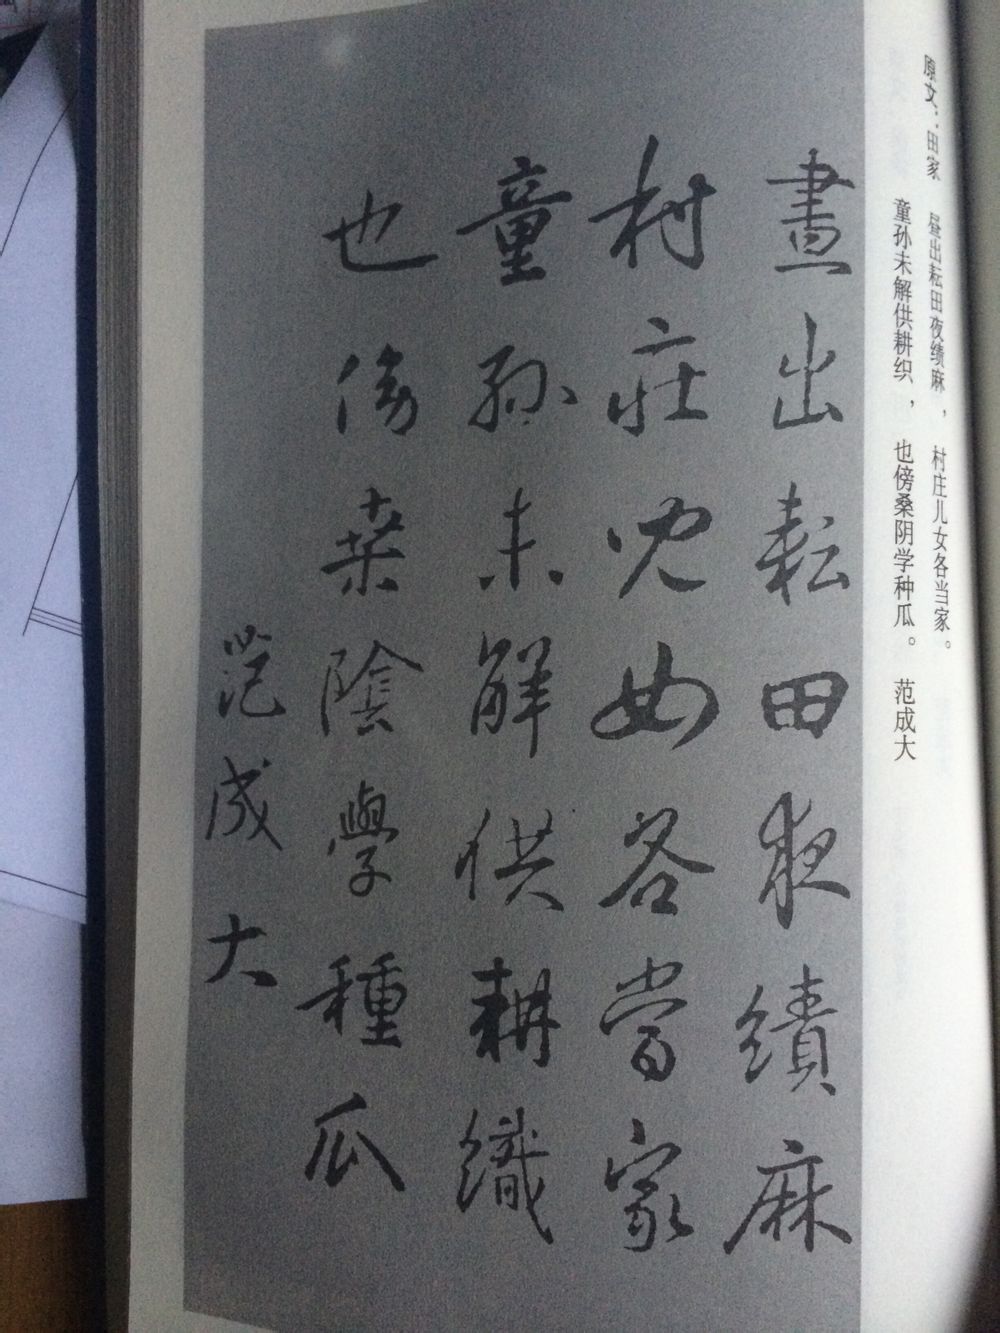 原文：田家 昼出耘田夜绩麻，村庄儿女各当家。
童孙未解供耕织，也傍桑阴学种瓜。 范成大
晝出耘田夜績麻
村莊兒女各當家
童孫未解供耕織
也傍桒陰學種瓜
范成大